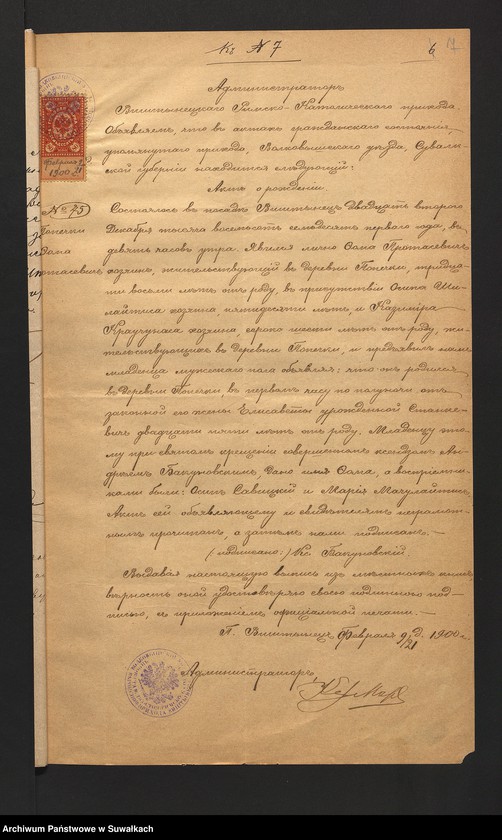 Къ № 7
6
Администраторъ
Виштынецкаго Римско-Католическаго прихода
Объявляетъ, что въ актахъ гражданскаго состоянія,
упомянутаго прихода, Волковышскаго уѣзда, Сувалк-
ской губерніи находится слѣдующій:
Актъ о рожденіи.
Февраля
1900
№ 75
Попечки
Сана
Состоялось въ посадѣ Виштынецъ Двадцать втораго
Декабря тысяча восемьсотъ семьдесятъ перваго года, въ
девять часовъ утра. Явился лично Сана Протасевичъ
хозяинъ, жительствующій въ деревни Попечки, тридца-
ти восьми лѣтъ отъ роду, въ присутствіи Осипа
хозяина, пятидесяти лѣтъ, и Казиміра
хозяина, сорока шести лѣтъ отъ роду, жи-
тельствующихъ въ деревни Попечки, и предъявилъ намъ
младенца мужескаго пола объявляя: что онъ родился
въ деревни Попечки, въ первомъ часу по полуночи, отъ
законной его жены Елисаветы урожденной Станке-
вичъ двадцати пяти лѣтъ отъ роду. Младенцу это-
му при святомъ крещеніи совершенномъ ксендзомъ Ан-
дреемъ Бапуновскимъ, дано имя Сана, а воспріемни-
ками были: Осипъ Савицкій и Марія
Актъ сей объявляющему и свидѣтелямъ неграмот-
нымъ прочитанъ, а затѣмъ нами подписанъ. —
(подписано:) Кс. Бапуновскій.
Выдавая настоящую выпись изъ мѣстныхъ книгъ
вѣрность оной удостовѣряю своею подлинною под-
писью, съ приложеніемъ офиціальной печати. —
П. Виштынецъ Февраля 9/21 д. 1900 г.
Администраторъ
Archiwum Państwowe w Suwałkach